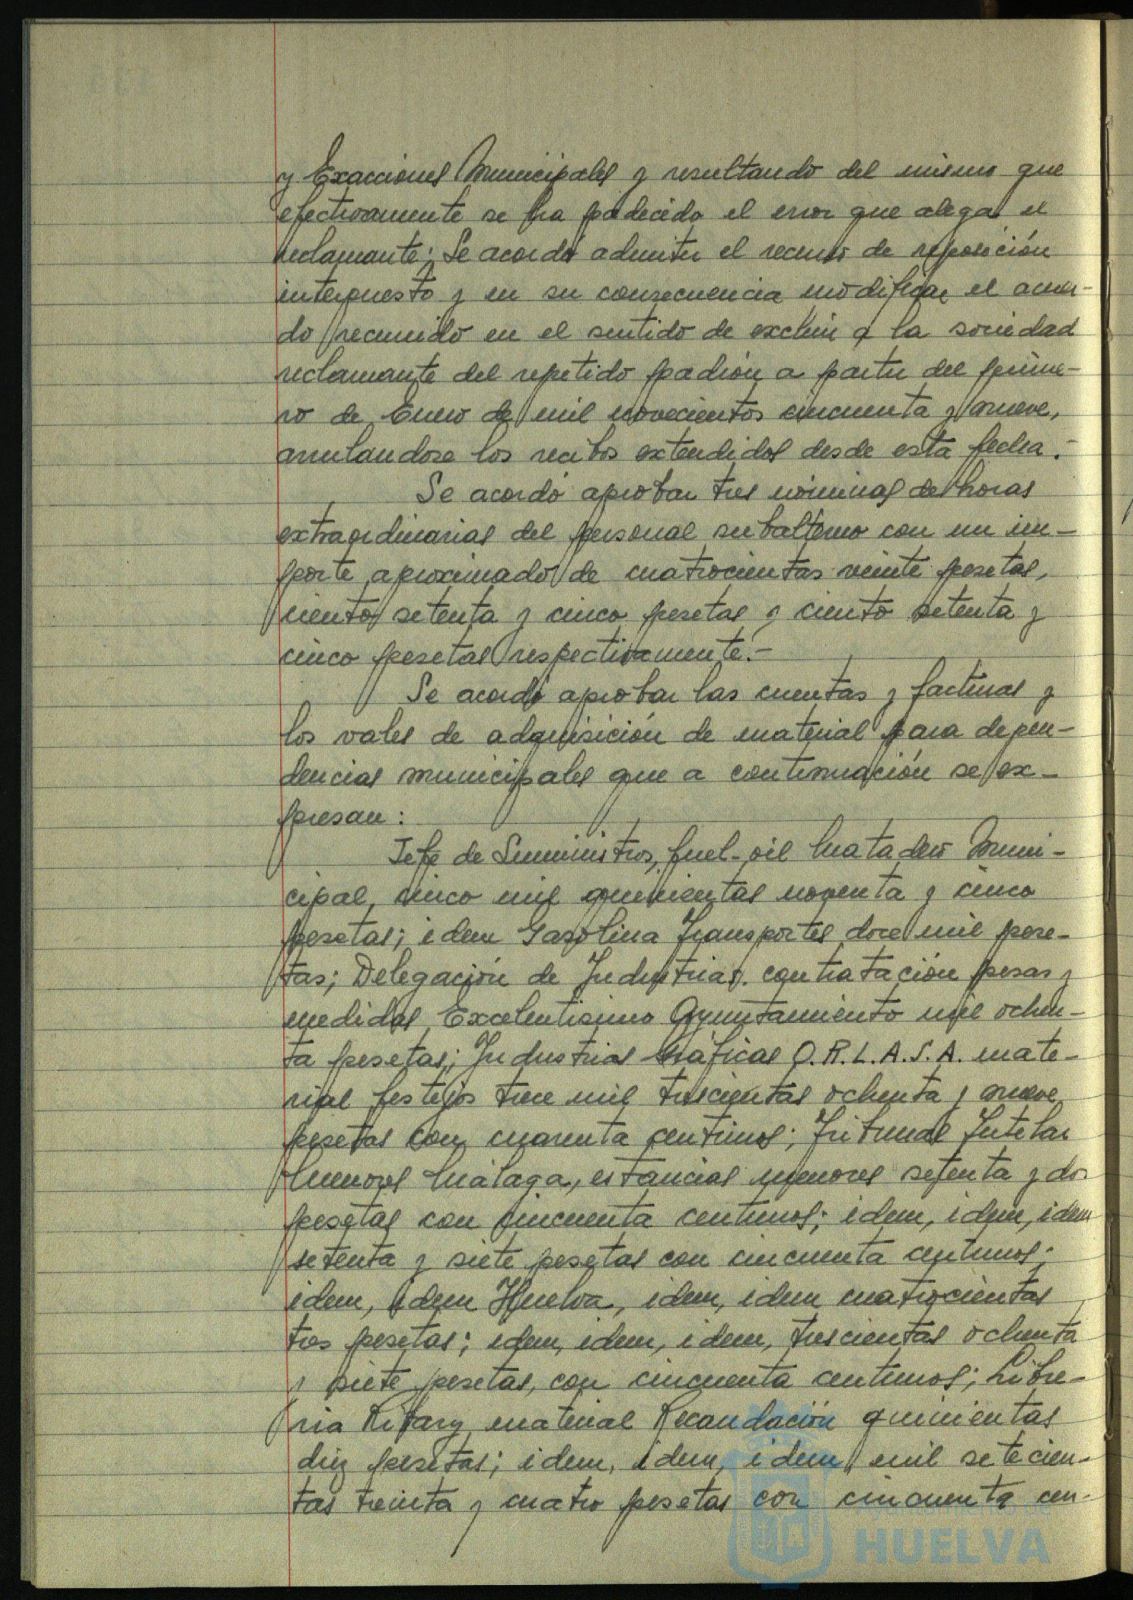 y Exacciones Municipales y resultando del mismo que
efectivamente se ha padecido el error que alega el
reclamante; Se acordó admitir el recurso de reposición
interpuesto y en su consecuencia modificar el acuer-
do recurrido en el sentido de excluir a la sociedad
reclamante del repetido padrón a partir del prime-
ro de Enero de mil novecientos cincuenta y nueve,
anulandose los recibos extendidos desde esta fecha.-
Se acordó aprobar tres nóminas de horas
extraordinarias del personal subalterno con un im-
porte aproximado de cuatrocientas veinte pesetas,
ciento setenta y cinco pesetas y ciento setenta y
cinco pesetas respectivamente.-
Se acordó aprobar las cuentas y facturas y
los vales de adquisición de material para depen-
dencias municipales que a continuación se ex-
presan:
Jefe de Suministros, fuel-oil Matadero Muni-
cipal, cinco mil quinientas noventa y cinco
pesetas; idem Gasolina Transportes doce mil pese-
tas; Delegación de Industrias. contratación pesas y
medidas Excelentisimo Ayuntamiento mil ochen-
ta pesetas; Industrias Gráficas O.R.L.A.S.A. mate-
rial festejos trece mil trescientas ochenta y nueve
pesetas con cuarenta centimos; Tribunal Tutelar
Menores Málaga, estancias menores setenta y dos
pesetas con cincuenta centimos; idem, idem, idem
setenta y siete pesetas con cincuenta centimos;
idem, idem Huelva, idem, idem cuatrocientas
tres pesetas; idem, idem, idem, trescientas ochenta
y siete pesetas, con cincuenta centimos; Libre-
ria material Recaudación quinientas
diez pesetas; idem, idem, idem, mil setecien-
tas treinta y cuatro pesetas con cincuenta cen-
Ayuntamiento de
HUELVA